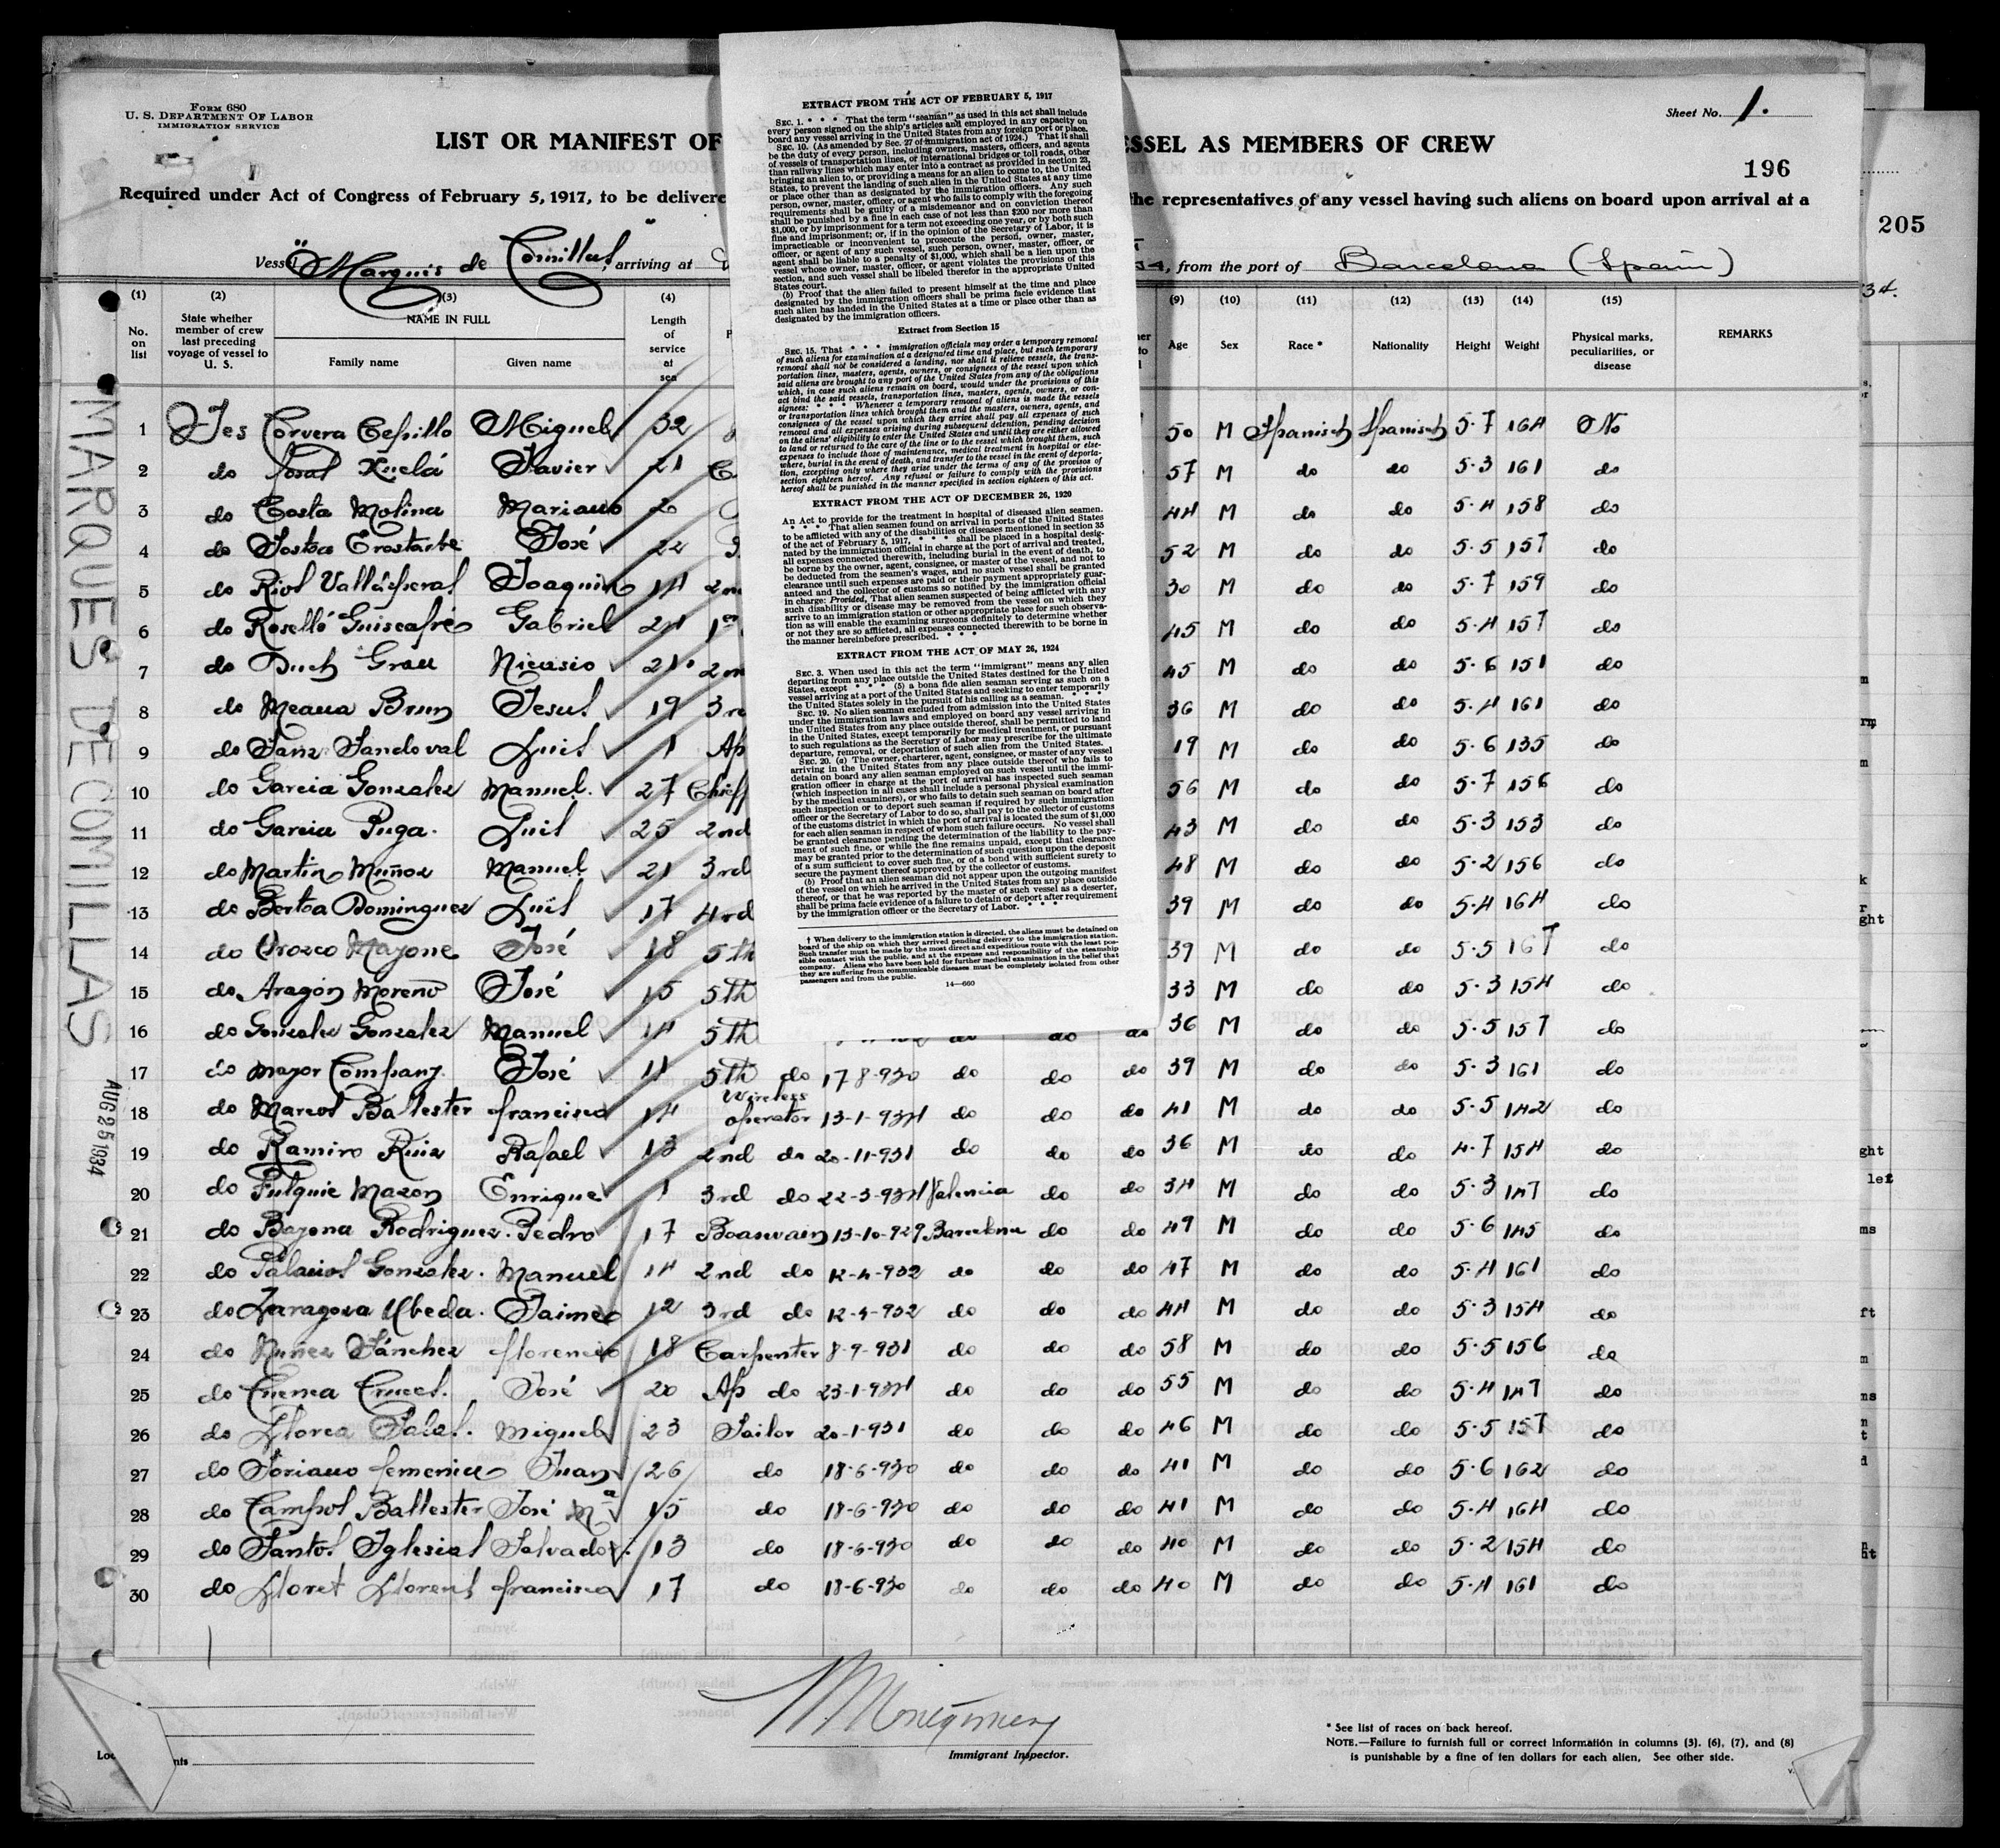 Form 680
U. S. Department Of Labor
IMMIGRATION SERVICE
Sheet No. 1.
LIST OR MANIFEST OF
ESSEL AS MEMBERS OF CREW
196
Required under Act of Congress of February 5, 1917, to be delivere
the representatives of any vessel having such aliens on board upon arrival at a
205
Vessel "Marqués de Comillas", arriving at
34, from the port of Barcelona (Spain)
34.
(1) (2) (3) (4) (9) (10) (11) (12) (13) (14) (15)
No. on list
State whether member of crew last preceding voyage of vessel to U. S.
NAME IN FULL
Family name Given name
Length of service at sea
Age Sex Race * Nationality Height Weight Physical marks, peculiarities, or disease REMARKS
MARQUES DE COMILLAS
AUG 25 1934
EXTRACT FROM THE ACT OF FEBRUARY 5, 1917
Sec. 1. * * * That the term "seaman" as used in this act shall include
every person signed on the ship's articles and employed in any capacity on
board any vessel arriving in the United States from any foreign port or place.
Sec. 10. (As amended by Sec. 27 of immigration act of 1924.) That it shall
be the duty of every person, including owners, masters, officers, and agents
of vessels of transportation lines, or international bridges or toll roads, other
than railway lines which may enter into a contract as provided in section 23,
bringing an alien to, or providing a means for an alien to come to, the United
States, to prevent the landing of such alien in the United States at any time
or place other than as designated by the immigration officers. Any such
person, owner, master, officer, or agent who fails to comply with the foregoing
requirements shall be guilty of a misdemeanor and on conviction thereof
shall be punished by a fine in each case of not less than $200 nor more than
$1,000, or by imprisonment for a term not exceeding one year, or by both such
fine and imprisonment; or, if in the opinion of the Secretary of Labor, it is
impracticable or inconvenient to prosecute the person, owner, master,
officer, or agent of any such vessel, such person, owner, master, officer, or
agent shall be liable to a penalty of $1,000, which shall be a lien upon the
vessel whose owner, master, officer, or agent violates the provisions of this
section, and such vessel shall be libeled therefor in the appropriate United
States court.
(b) Proof that the alien failed to present himself at the time and place
designated by the immigration officers shall be prima facie evidence that
such alien has landed in the United States at a time or place other than as
designated by the immigration officers.
Extract from Section 15
Sec. 15. That * * * immigration officials may order a temporary removal
of such aliens for examination at a designated time and place, but such temporary
removal shall not be considered a landing, nor shall it relieve vessels, the trans-
portation lines, masters, agents, owners, or consignees of the vessel upon which
said aliens are brought to any port of the United States from any of the obligations
which, in case such aliens remain on board, would under the provisions of this
act bind the said vessels, transportation lines, masters, agents, owners, or con-
signees: * * * Whenever a temporary removal of aliens is made the vessels
or transportation lines which brought them and the masters, owners, agents, and
consignees of the vessel upon which they arrive shall pay all expenses of such
removal and all expenses arising during subsequent detention, pending decision
on the aliens' eligibility to enter the United States and until they are either allowed
to land or returned to the care of the line or to the vessel which brought them, such
expenses to include those of maintenance, medical treatment in hospital or else-
where, burial in the event of death, and transfer to the vessel in the event of deporta-
tion, excepting only where they arise under the terms of any of the provisos of
section eighteen hereof. Any refusal or failure to comply with the provisions
hereof shall be punished in the manner specified in section eighteen of this act.
EXTRACT FROM THE ACT OF DECEMBER 26, 1920
An Act to provide for the treatment in hospital of diseased alien seamen.
* * * That alien seamen found on arrival in ports of the United States
to be afflicted with any of the disabilities or diseases mentioned in section 35
of the act of February 5, 1917, * * * shall be placed in a hospital desig-
nated by the immigration official in charge at the port of arrival and treated,
all expenses connected therewith, including burial in the event of death, to
be borne by the owner, agent, consignee, or master of the vessel, and not to
be deducted from the seamen's wages, and no such vessel shall be granted
clearance until such expenses are paid or their payment appropriately guar-
anteed and the collector of customs so notified by the immigration official
in charge: Provided, That alien seamen suspected of being afflicted with any
such disability or disease may be removed from the vessel on which they
arrive to an immigration station or other appropriate place for such observa-
tion as will enable the examining surgeons definitely to determine whether
or not they are so afflicted, all expenses connected therewith to be borne in
the manner hereinbefore prescribed. * * *
EXTRACT FROM THE ACT OF MAY 26, 1924
Sec. 3. When used in this act the term "immigrant" means any alien
departing from any place outside the United States destined for the United
States, except * * * (5) a bona fide alien seaman serving as such on a
vessel arriving at a port of the United States and seeking to enter temporarily
the United States solely in the pursuit of his calling as a seaman. * * *
Sec. 19. No alien seaman excluded from admission into the United States
under the immigration laws and employed on board any vessel arriving in
the United States from any place outside thereof, shall be permitted to land
in the United States, except temporarily for medical treatment, or pursuant
to such regulations as the Secretary of Labor may prescribe for the ultimate
departure, removal, or deportation of such alien from the United States.
Sec. 20. (a) The owner, charterer, agent, consignee, or master of any vessel
arriving in the United States from any place outside thereof who fails to
detain on board any alien seaman employed on such vessel until the immi-
gration officer in charge at the port of arrival has inspected such seaman
(which inspection in all cases shall include a personal physical examination
by the medical examiners), or who fails to detain such seaman on board after
such inspection or to deport such seaman if required by such immigration
officer or the Secretary of Labor to do so, shall pay to the collector of customs
of the customs district in which the port of arrival is located the sum of $1,000
for each alien seaman in respect of whom such failure occurs. No vessel shall
be granted clearance pending the determination of the liability to the pay-
ment of such fine, or while the fine remains unpaid, except that clearance
may be granted prior to the determination of such question upon the deposit
of a sum sufficient to cover such fine, or of a bond with sufficient surety to
secure the payment thereof approved by the collector of customs.
(b) Proof that an alien seaman did not appear upon the outgoing manifest
of the vessel on which he arrived in the United States from any place outside
thereof, or that he was reported by the master of such vessel as a deserter,
shall be prima facie evidence of a failure to detain or deport after requirement
by the immigration officer or the Secretary of Labor. * * *
† When delivery to the immigration station is directed, the aliens must be detained on
board of the ship on which they arrived pending delivery to the immigration station.
Such transfer must be made by the most direct and expeditious route with the least pos-
sible contact with the public, and at the expense and responsibility of the steamship
company. Aliens who have been held for further medical examination in the belief that
they are suffering from communicable diseases must be completely isolated from other
passengers and from the public.
14—660
1 Yes Corvera Cepillo Miguel 32 50 M Spanish Spanish 5-7 164 No
2 do Javier 21 57 M do do 5-3 161 do
3 do Costa Molina Mariano 2 44 M do do 5-4 158 do
4 do José 22 52 M do do 5-5 157 do
5 do Joaquin 14 2n 30 M do do 5-7 159 do
6 do Roselló Guiscafré Gabriel 24 1er 45 M do do 5-4 157 do
7 do Duch Grau Nicasio 21 2n 45 M do do 5-6 151 do
8 do Meana Brun Jesus 19 3r 36 M do do 5-4 161 do
9 do Sanz Sandoval Luis 1 Ap 19 M do do 5-6 135 do
10 do Garcia Gonzalez Manuel 27 Chief 56 M do do 5-7 156 do
11 do Garcia Puga Luis 25 2nd 43 M do do 5-3 153 do
12 do Martin Muñoz Manuel 21 3rd 48 M do do 5-2 156 do
13 do Bertoa Dominguez Luis 17 4rd 39 M do do 5-4 164 do
14 do Orozco Mayone José 18 5th 39 M do do 5-5 167 do
15 do Aragón Moreno José 15 5th 33 M do do 5-3 154 do
16 do Gonzalez Gonzalez Manuel 14 5th do do do 36 M do do 5-5 157 do
17 do Mayor Company José 11 5th do 17-8-930 do do do 39 M do do 5-3 161 do
18 do Marcos Ballester Francisco 14 Wireless operator 13-1-934 do do do 41 M do do 5-5 142 do
19 do Ramiro Ruiz Rafael 13 2nd do 20-11-931 do do do 36 M do do 4-7 154 do
20 do Fulquie Mazon Enrique 1 3rd do 22-3-934 Valencia do do 34 M do do 5-3 147 do
21 do Bayona Rodriguez Pedro 17 Boaswain 13-10-929 Barcelona do do 49 M do do 5-6 145 do
22 do Palacios Gonzalez Manuel 14 2nd do 12-4-932 do do do 47 M do do 5-4 161 do
23 do Zaragoza Ubeda Jaime 12 3rd do 12-4-932 do do do 44 M do do 5-3 154 do
24 do Nuñez Sánchez Florencio 18 Carpenter 8-9-931 do do do 58 M do do 5-5 156 do
25 do José 20 Ap do 23-1-934 do do do 55 M do do 5-4 147 do
26 do Llorca Miguel 23 Sailor 20-1-931 do do do 46 M do do 5-5 157 do
27 do Soriano Femenia Juan 26 do 18-6-930 do do do 41 M do do 5-6 162 do
28 do Campos Ballester José Mª 15 do 18-6-930 do do do 41 M do do 5-4 164 do
29 do Santos Iglesias Salvador 13 do 18-6-930 do do do 40 M do do 5-2 154 do
30 do Lloret Llorens Francisco 17 do 18-6-930 do do do 40 M do do 5-4 161 do
Montgomery
Immigrant Inspector.
* See list of races on back hereof.
Note.—Failure to furnish full or correct information in columns (3), (6), (7), and (8)
is punishable by a fine of ten dollars for each alien. See other side.